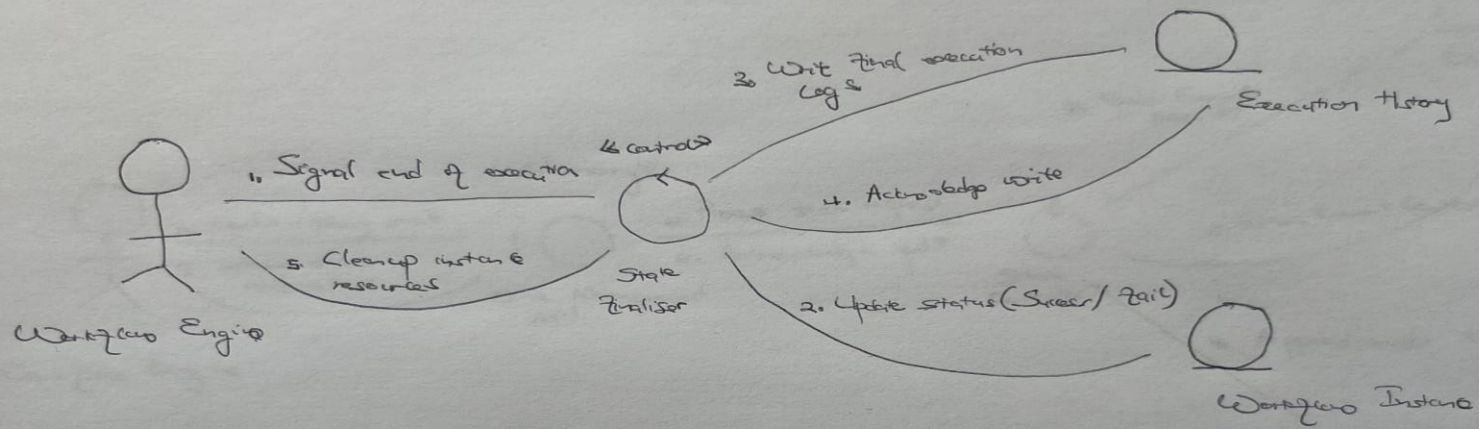 3. Write final execution
logs
Execution History
<<control>>
1. Signal end of execution
4. Acknowledge write
5. Cleanup instance
resources
State
Finaliser
2. Update status (Success/ Fail)
Workflow Engine
Workflow Instance